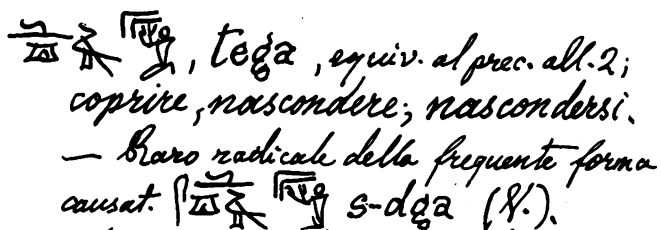 , tega, equiv. al prec. all. 2;
coprire, nascondere; nascondersi.
— Raro radicale della frequente forma
causat. s-dga (V.).